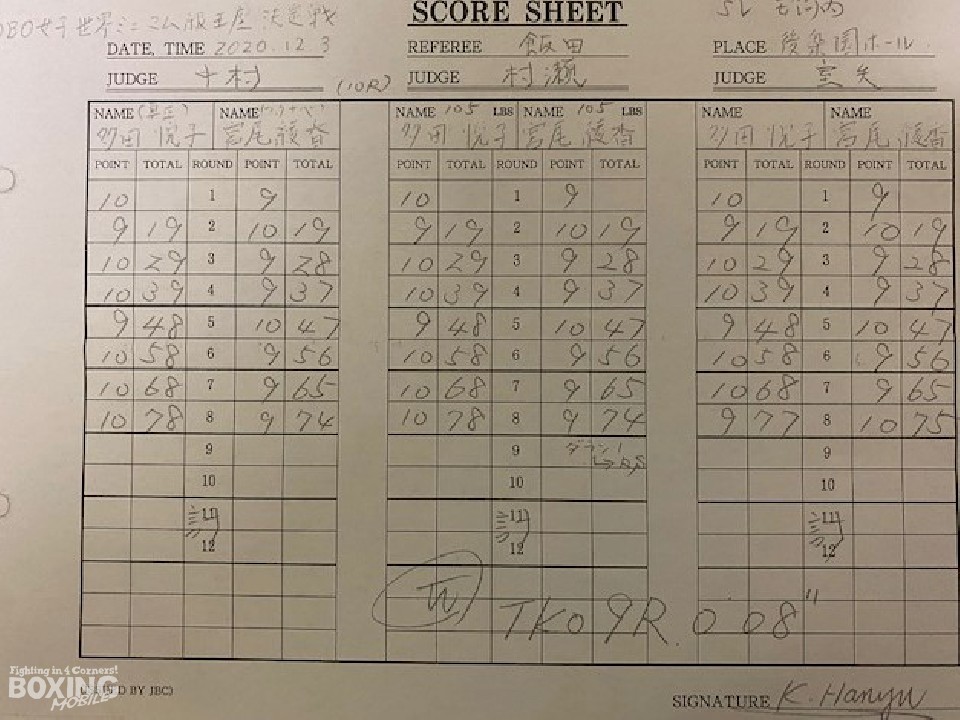 WBO女子世界ミニマム級王座決定戦
SCORE SHEET
DATE, TIME 2020.12.3 REFEREE 飯田 PLACE 後楽園ホール
JUDGE 中村 (10R) JUDGE 村瀬 JUDGE
NAME (真正) NAME (ワタナベ) NAME 105 LBS NAME 105 LBS NAME NAME
多田 悦子 宮尾 綾香 多田 悦子 宮尾 綾香 多田 悦子 宮尾 綾香
POINT TOTAL ROUND POINT TOTAL POINT TOTAL ROUND POINT TOTAL POINT TOTAL ROUND POINT TOTAL
10 1 9 10 1 9 10 1 9
9 19 2 10 19 9 19 2 10 19 9 19 2 10 19
10 29 3 9 28 10 29 3 9 28 10 29 3 9 28
10 39 4 9 37 10 39 4 9 37 10 39 4 9 37
9 48 5 10 47 9 48 5 10 47 9 48 5 10 47
10 58 6 9 56 10 58 6 9 56 10 58 6 9 56
10 68 7 9 65 10 68 7 9 65 10 68 7 9 65
10 78 8 9 74 10 78 8 9 74 9 77 8 10 75
9 9 ダウン1 9
10 10 10
11 11 11
12 12 12
TKO 9R. 0'08"
Fighting in 4 Corners!
BOXING
MOBILE
BY JBC)
SIGNATURE K. Hanyu